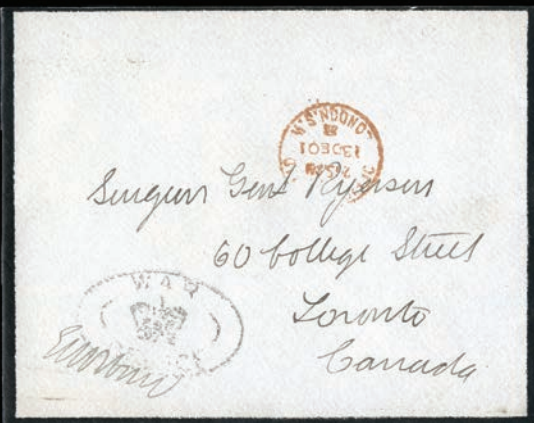 LONDON.S.W
13 DE 01
Surgeon Genl Ryerson
60 College Street
WAR
Toronto
Canada